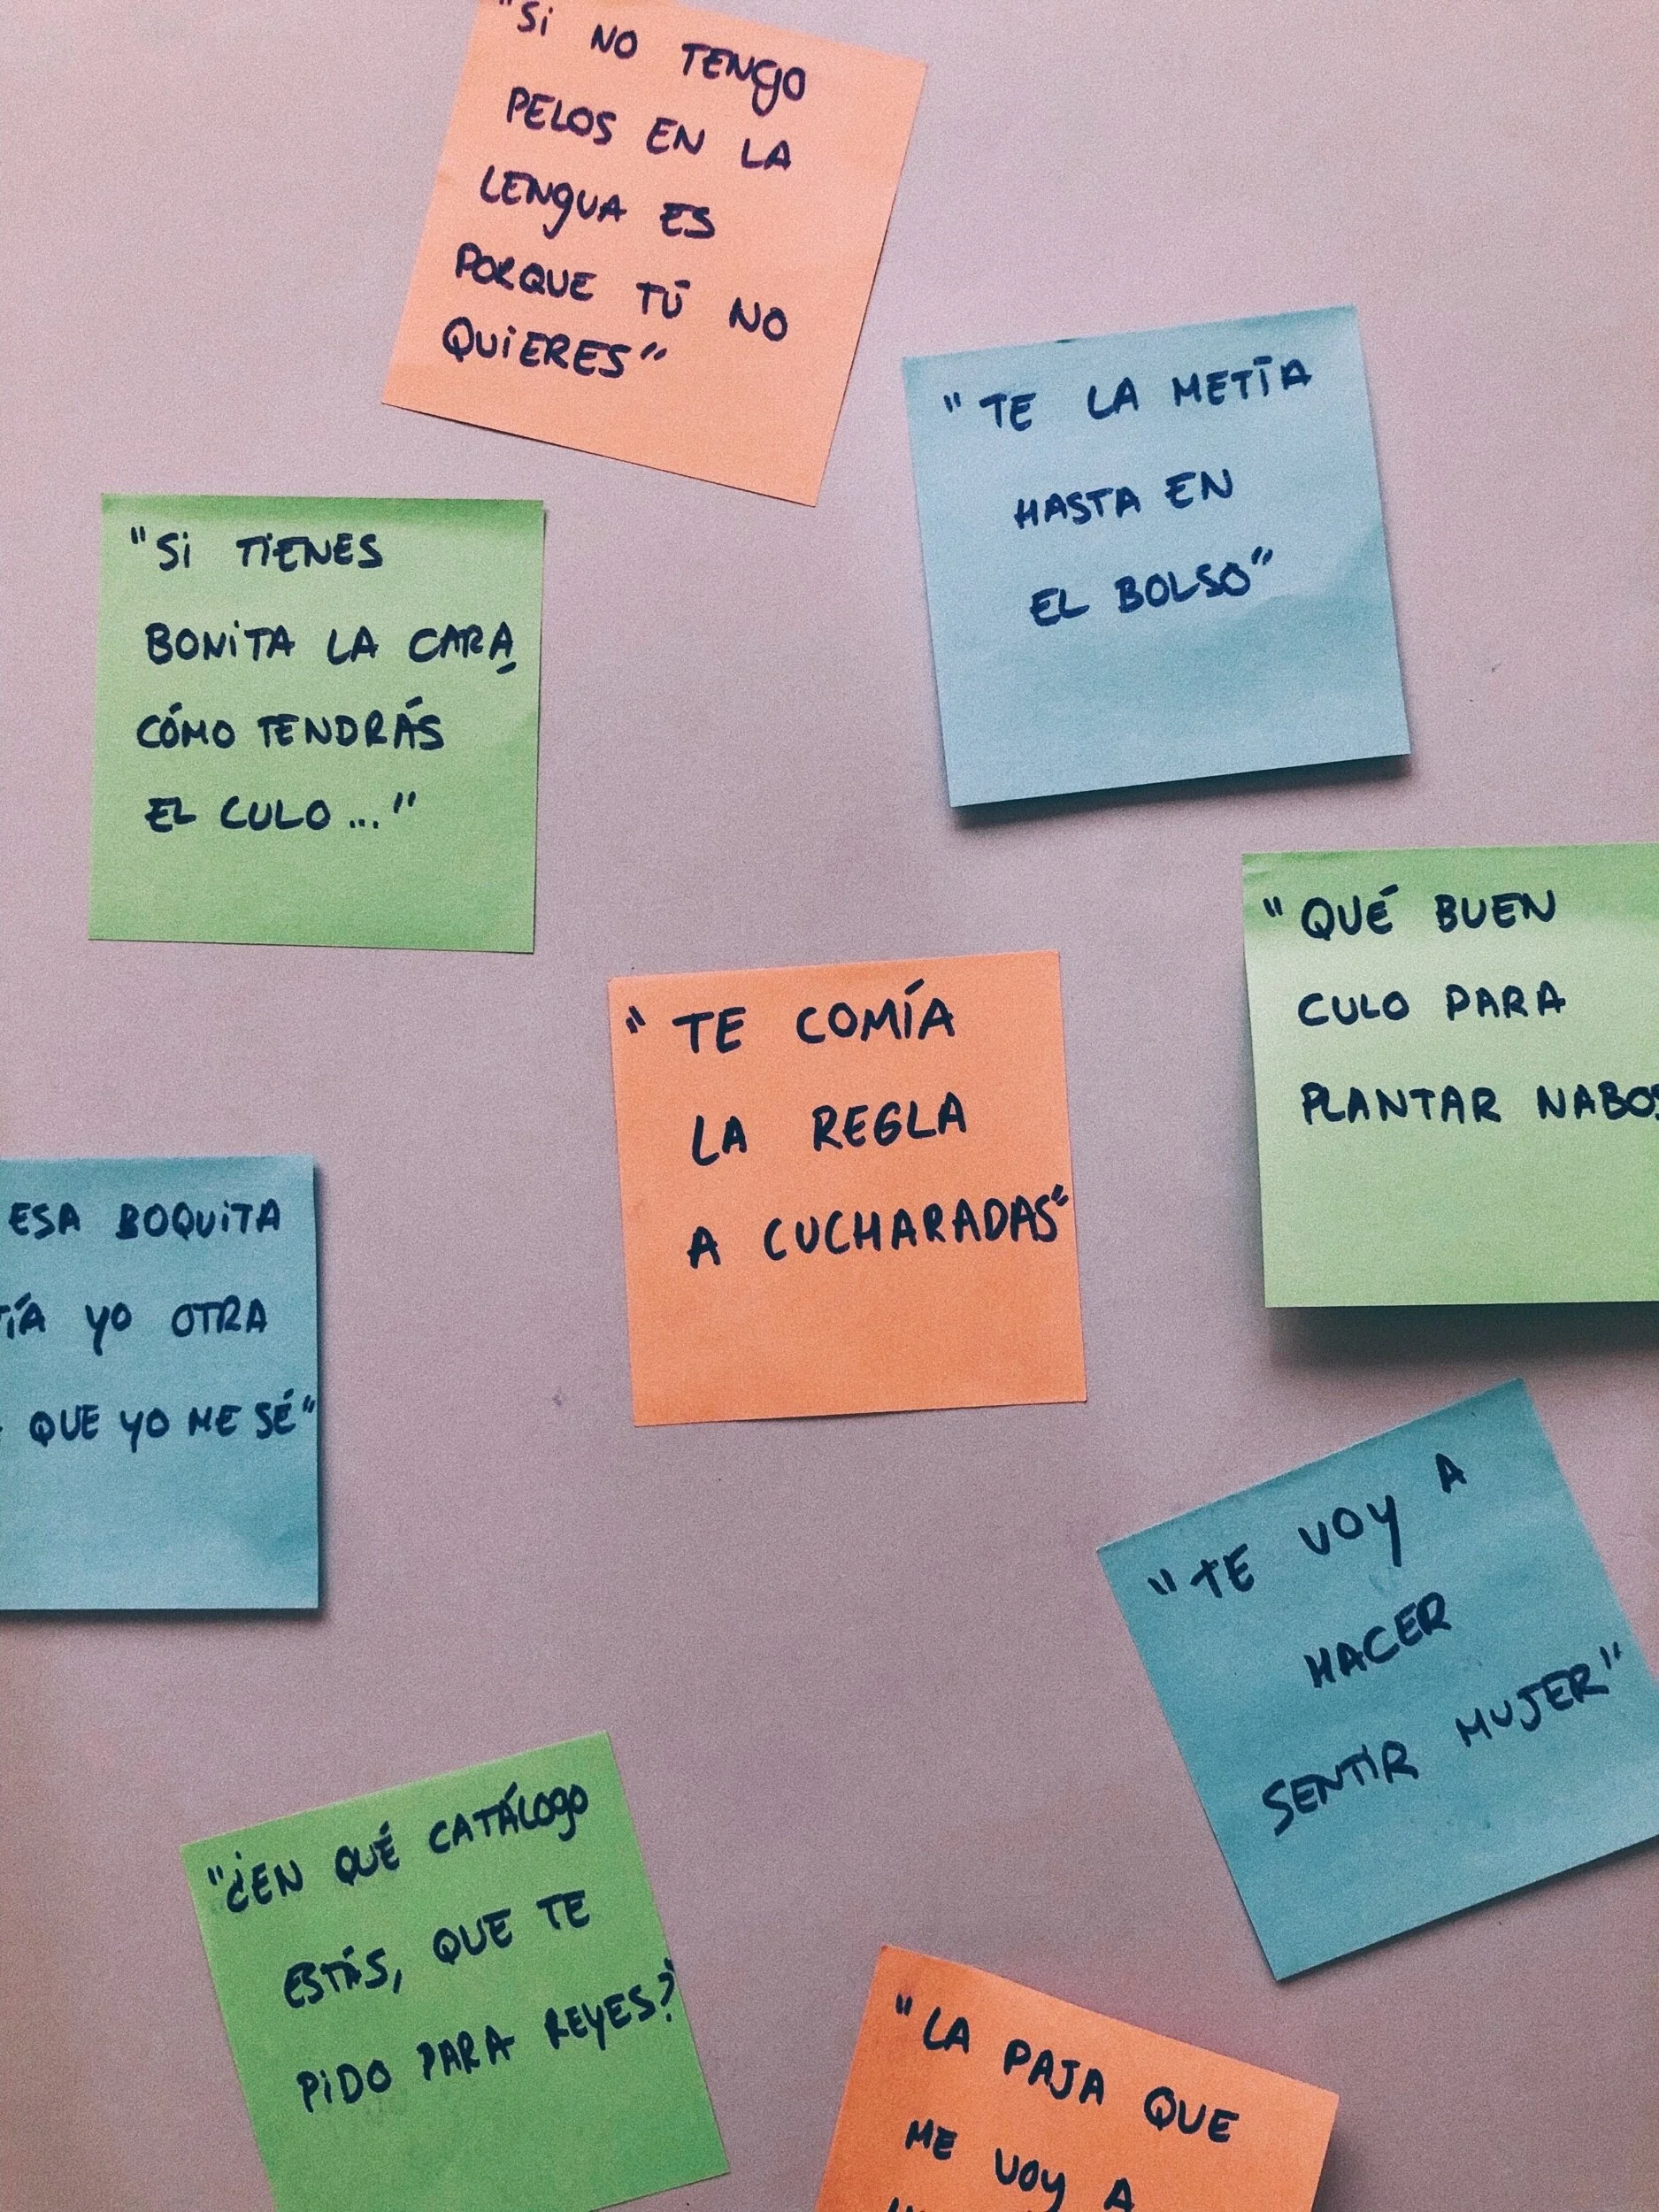 "Si NO TENgO
PELOS EN LA
LENgUA ES
PORQUE TÚ NO
QUiERES"
"TE LA METÍA
HASTA EN
EL BOLSO"
"Si TiENES
BONiTA LA CARA,
CÓMO TENDRÁS
EL CULO..."
"QUÉ BUEN
CULO PARA
PLANTAR NABOS
"TE COMÍA
LA REGLA
A CUCHARADAS"
ESA BOQUiTA
YO OTRA
QUE YO ME SÉ"
"TE VOY A
HACER
SENTIR MUJER"
"¿EN QUÉ CATÁLOgO
ESTÁS, QUE TE
PiDO PARA REYES?"
"LA PAJA QUE
ME VOY A